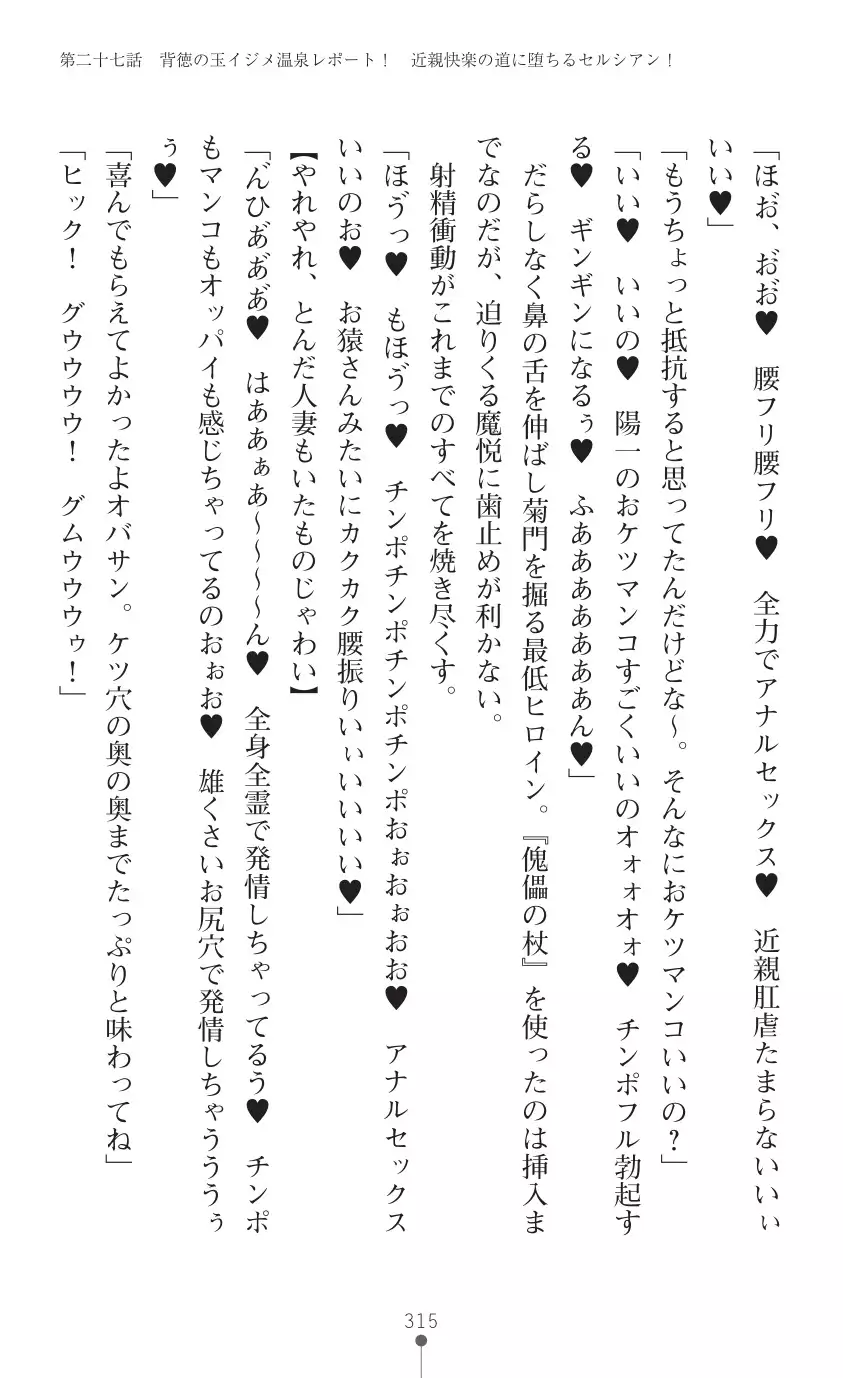 第二十七話　背徳の玉イジメ温泉レポート！　近親快楽の道に堕ちるセルシアン！
「ほぉ、ぉ゙ぉ゙♥　腰フリ腰フリ♥　全力でアナルセックス♥　近親肛虐たまらないいぃ
いい♥」
「もうちょっと抵抗すると思ってたんだけどな～。そんなにおケツマンコいいの？」
「いい♥　いいの♥　陽一のおケツマンコすごくいいのオォォオォ♥　チンポフル勃起す
る♥　ギンギンになるぅ♥　ふああああああぁん♥」
だらしなく鼻の舌を伸ばし菊門を掘る最低ヒロイン。『傀儡の杖』を使ったのは挿入ま
でなのだが、迫りくる魔悦に歯止めが利かない。
射精衝動がこれまでのすべてを焼き尽くす。
「ほゔっ♥　もほゔっ♥　チンポチンポチンポチンポおぉおぉおお♥　アナルセックス
いいのお♥　お猿さんみたいにカクカク腰振りいぃいいいい♥」
【やれやれ、とんだ人妻もいたものじゃわい】
「ん゙ひあ゙あ゙あ゙♥　はああぁあ～～～～ん♥　全身全霊で発情しちゃってるう♥　チンポ
もマンコもオッパイも感じちゃってるのおぉお♥　雄くさいお尻穴で発情しちゃうううぅ
ぅ♥」
「喜んでもらえてよかったよオバサン。ケツ穴の奥の奥までたっぷりと味わってね」
「ヒック！　グウウウウ！　グムウウウゥ！」
315